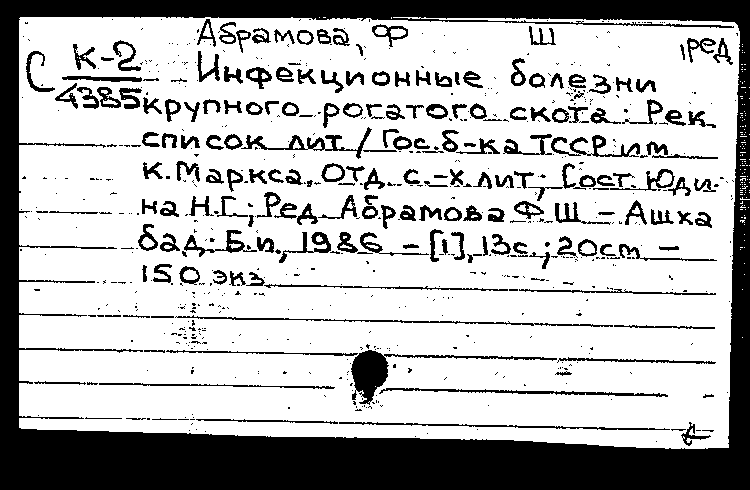 Абрамова, Ф Ш , ред
С К-2 Инфекционные болезни
4385 крупного рогатого скота : Рек.
список лит / Гос. б-ка ТССР им.
К. Маркса, Отд. с.-х. лит; Сост. Юди-
на Н.Г; Ред. Абрамова Ф Ш – Ашха
бад: Б.и., 1986 – [1], 13с.; 20см –
150 экз